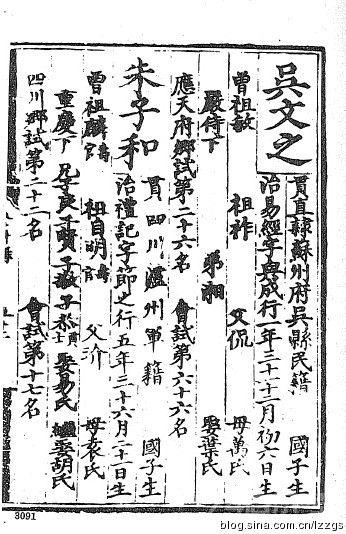 吳文之
貫直隸蘇州府吳縣民籍 國子生
治易經字與成行一年三十十二月初六日生
曾祖敏 祖祚 父侃 母萬氏
嚴侍下 弟湘 娶葉氏
應天府鄉試第二十六名 會試第六十六名
朱子和
貫四川瀘州軍籍 國子生
治禮記字節之行五年三十六月二十一日生
曾祖麟 壽官 祖自明 壽官 父介 母袁氏
重慶下 兄子庚 子賓 子敬 子恭 娶易氏 繼娶胡氏
四川鄉試第二十一名 會試第十七名
3091
blog.sina.com.cn/lzzgs